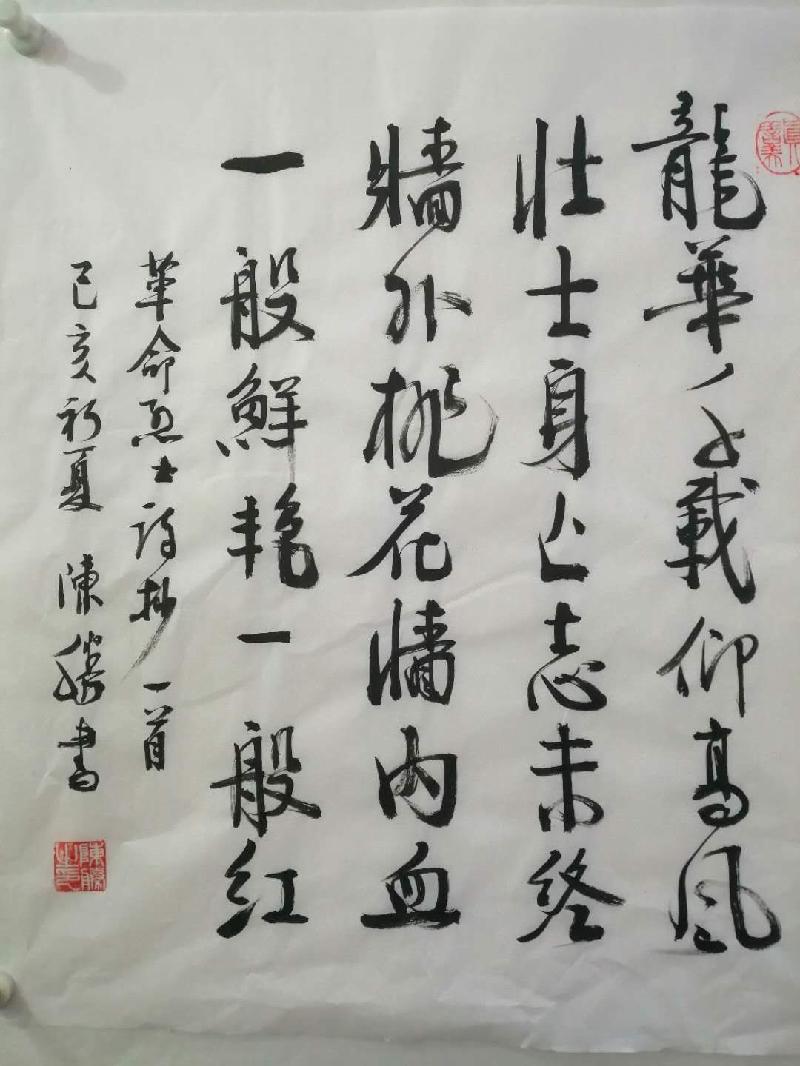 龍華千載仰高風
壯士身亡志未終
牆外桃花牆內血
一般鮮艳一般紅
革命烈士诗抄一首
己亥初夏 陳勝書
陳勝